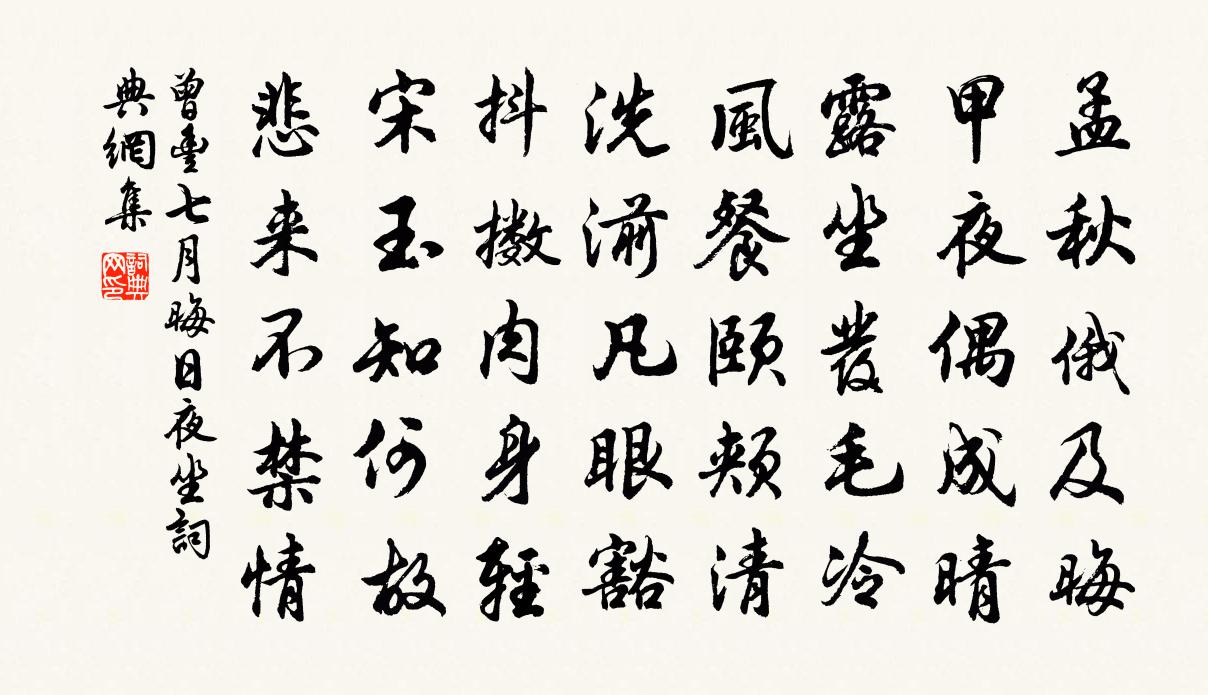 孟秋俄及晦
甲夜偶成晴
露坐發毛冷
風餐頤頰清
洗湔凡眼豁
抖擻肉身輕
宋玉知何故
悲来不禁情
曾豐七月晦日夜坐詞
典網集
詞典网印